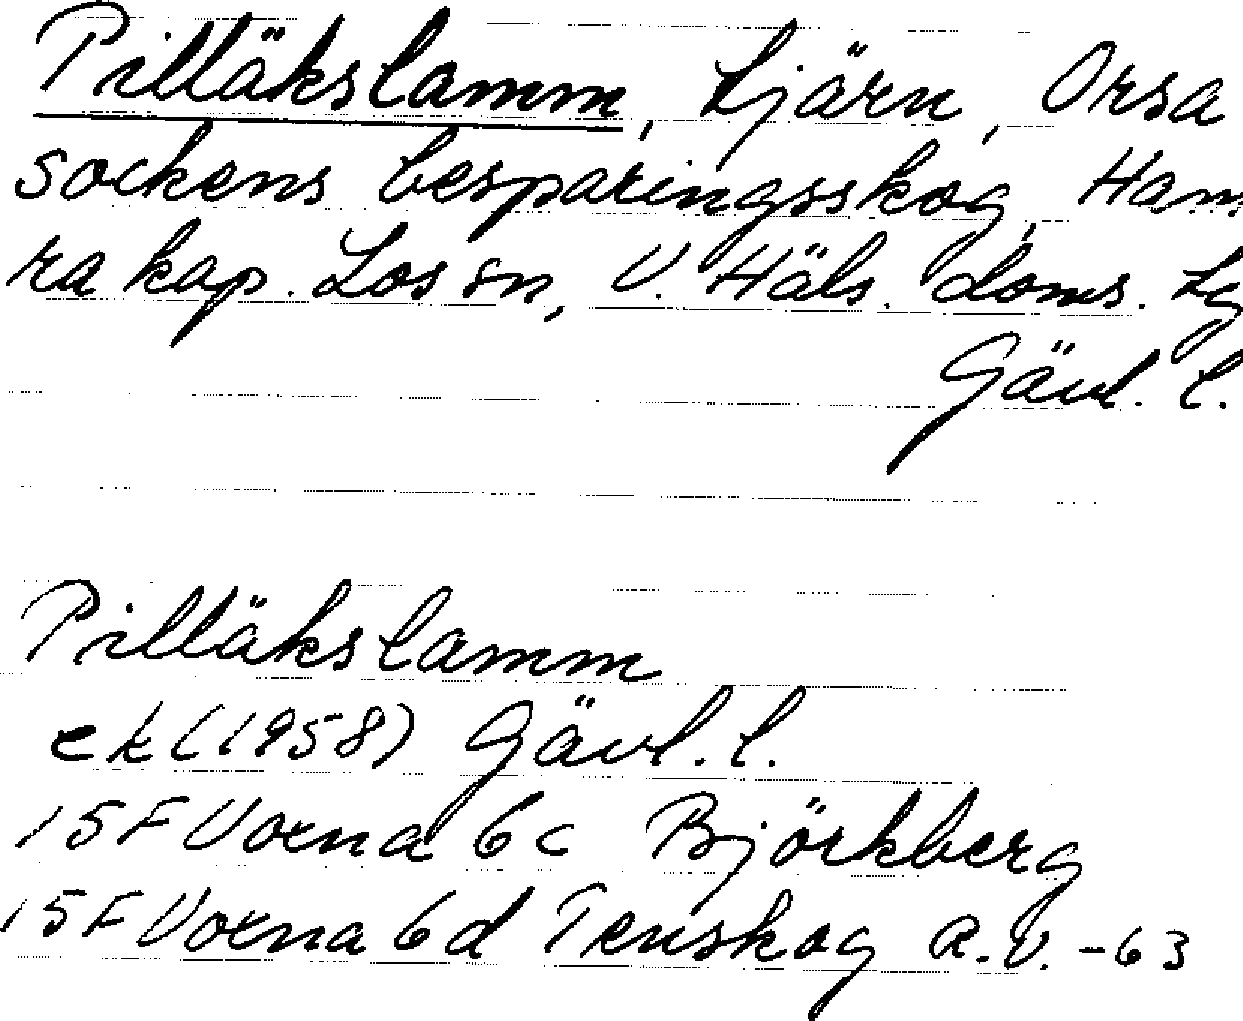 Pilläkslamm, tjärn, Orsa
sockens besparingsskog, Ham
ra kap. Los sn, V. Häls. doms. Lg
Gävl. l.
Pilläkslamm
ek (1958) Gävl. l.
15F Voxna 6c Björkberg
15F Voxna 6d Tenskog R.V. -63